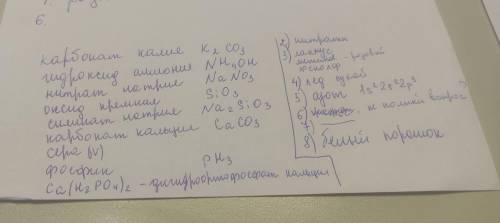 6.
карбонат калия K2CO3
гидроксид аммония NH4OH
нитрат натрия NaNO3
оксид кремния SiO3
силикат натрия Na2SiO3
карбонат кальция CaCO3
сера (IV)
фосфин PH3
Ca(H2PO4)2 - дигидроортофосфат кальция
2) нитраты
3) лакмус
- розовый
4) лёд сухой
5) азот 1s²2s²2p³
6) не поняла вопрос?
7)
8) белый порошок